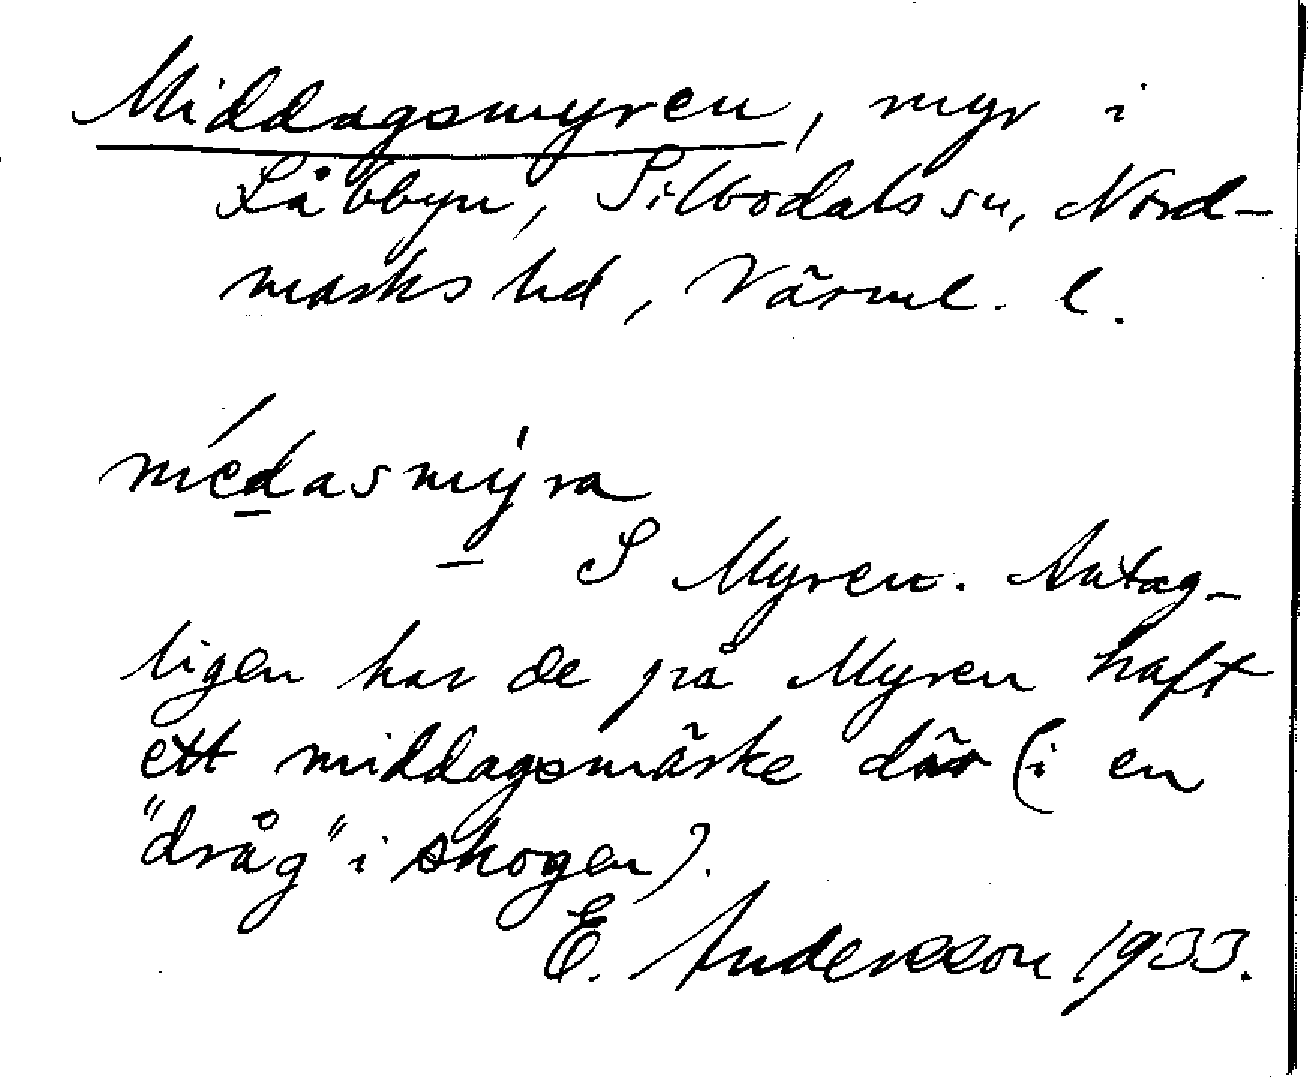 Middagsmyren, myr i
Låbbyn, Silbodals sn, Nord-
marks hd, Värml. l.
médasmýra
S Myren. Antag-
ligen har de på Myren haft
ett middagsmärke där (i en
"dråg" i skogen).
E. Andersson 1933.